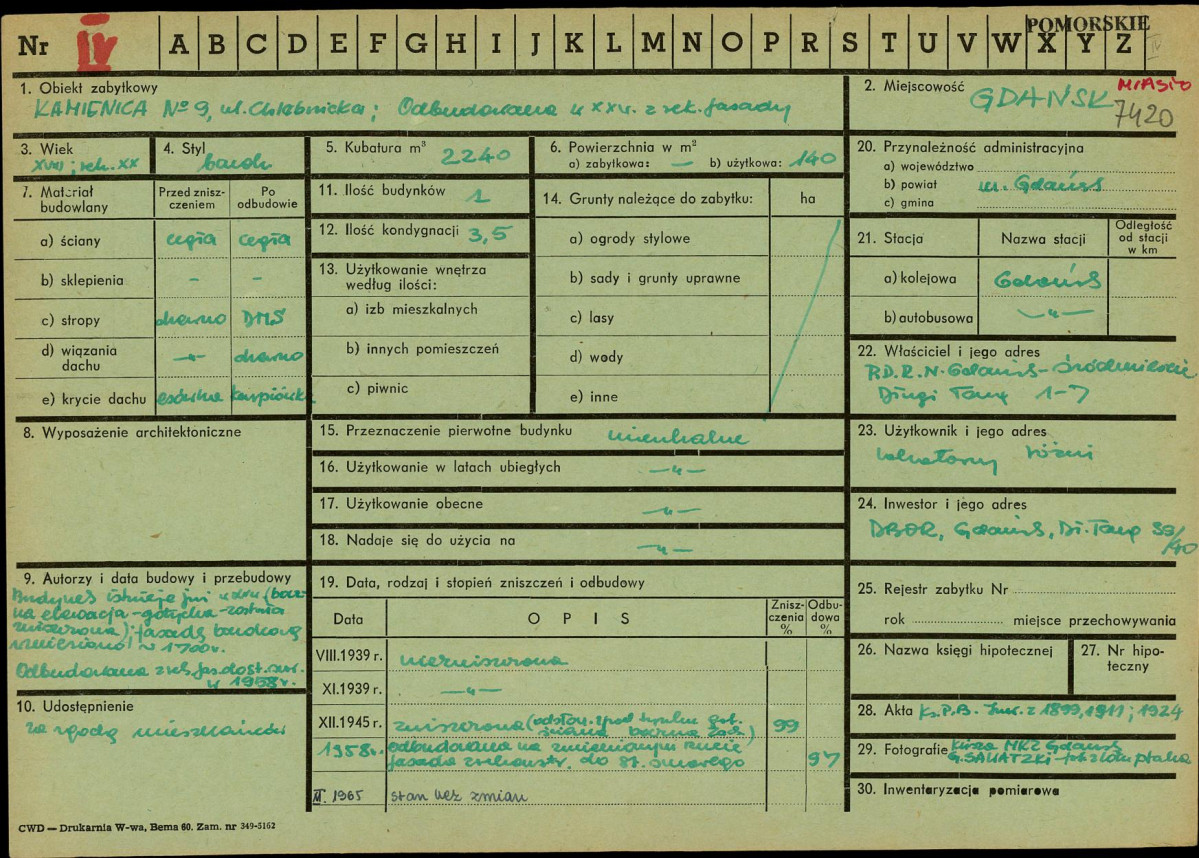 Nr IV A B C D E F G H I J K L M N O P R S T U V W X Y Z
POMORSKIE
IV
1. Obiekt zabytkowy
KAMIENICA Nº 9, ul. Chlebnicka; Odbudowana w XX w. z rek. fasady
2. Miejscowość
GDAŃSK MIASTO
7420
3. Wiek
XVII; rek. XX
4. Styl
barok
5. Kubatura m³ 2240
6. Powierzchnia w m²
a) zabytkowa: — b) użytkowa: 140
20. Przynależność administracyjna
a) województwo
b) powiat m. Gdańsk
c) gmina
7. Materiał budowlany
Przed zniszczeniem
Po odbudowie
a) ściany cegła cegła
b) sklepienia – –
c) stropy drewno DMS
d) wiązania dachu –„– drewno
e) krycie dachu esówka karpiówka
11. Ilość budynków 1
12. Ilość kondygnacji 3,5
13. Użytkowanie wnętrza
według ilości:
a) izb mieszkalnych
b) innych pomieszczeń
c) piwnic
14. Grunty należące do zabytku: ha
a) ogrody stylowe
b) sady i grunty uprawne
c) lasy
d) wody
e) inne
21. Stacja Nazwa stacji Odległość od stacji w km
a) kolejowa Gdańsk
b) autobusowa –„–
22. Właściciel i jego adres
P.D.R.N. Gdańsk - Śródmieście
Długi Targ 1-7
8. Wyposażenie architektoniczne
15. Przeznaczenie pierwotne budynku mieszkalne
16. Użytkowanie w latach ubiegłych –„–
17. Użytkowanie obecne –„–
18. Nadaje się do użycia na –„–
23. Użytkownik i jego adres
lokatorzy różni
24. Inwestor i jego adres
DBOR, Gdańsk, Dł. Targ 39/40
9. Autorzy i data budowy i przebudowy
Budynek istnieje już
na elewacja - gotycka - została
zniszczona); fasadę barokową
wzniesiono w 1700 r.
Odbudowana z rek. fas. do st.
w 1958 r.
10. Udostępnienie
za zgodą mieszkańców
19. Data, rodzaj i stopień zniszczeń i odbudowy
Data OPIS Zniszczenia % Odbudowa %
VIII.1939 r. niezniszczona
XI.1939 r. –„–
XII.1945 r. zniszczona (odsłon. spod tynku got.
ściana boczna zach.) 99
1958 r. odbudowana na zmienionym rzucie
fasada zrekonstr. do st. 97
XI. 1965 stan bez zmian
25. Rejestr zabytku Nr
rok miejsce przechowywania
26. Nazwa księgi hipotecznej
27. Nr hipoteczny
28. Akta Ks. P.B. Inw. z 1899, 1911; 1924
29. Fotografie klisza MKZ Gdańsk
30. Inwentaryzacja pomiarowa
CWD — Drukarnia W-wa, Bema 60. Zam. nr 349-5162